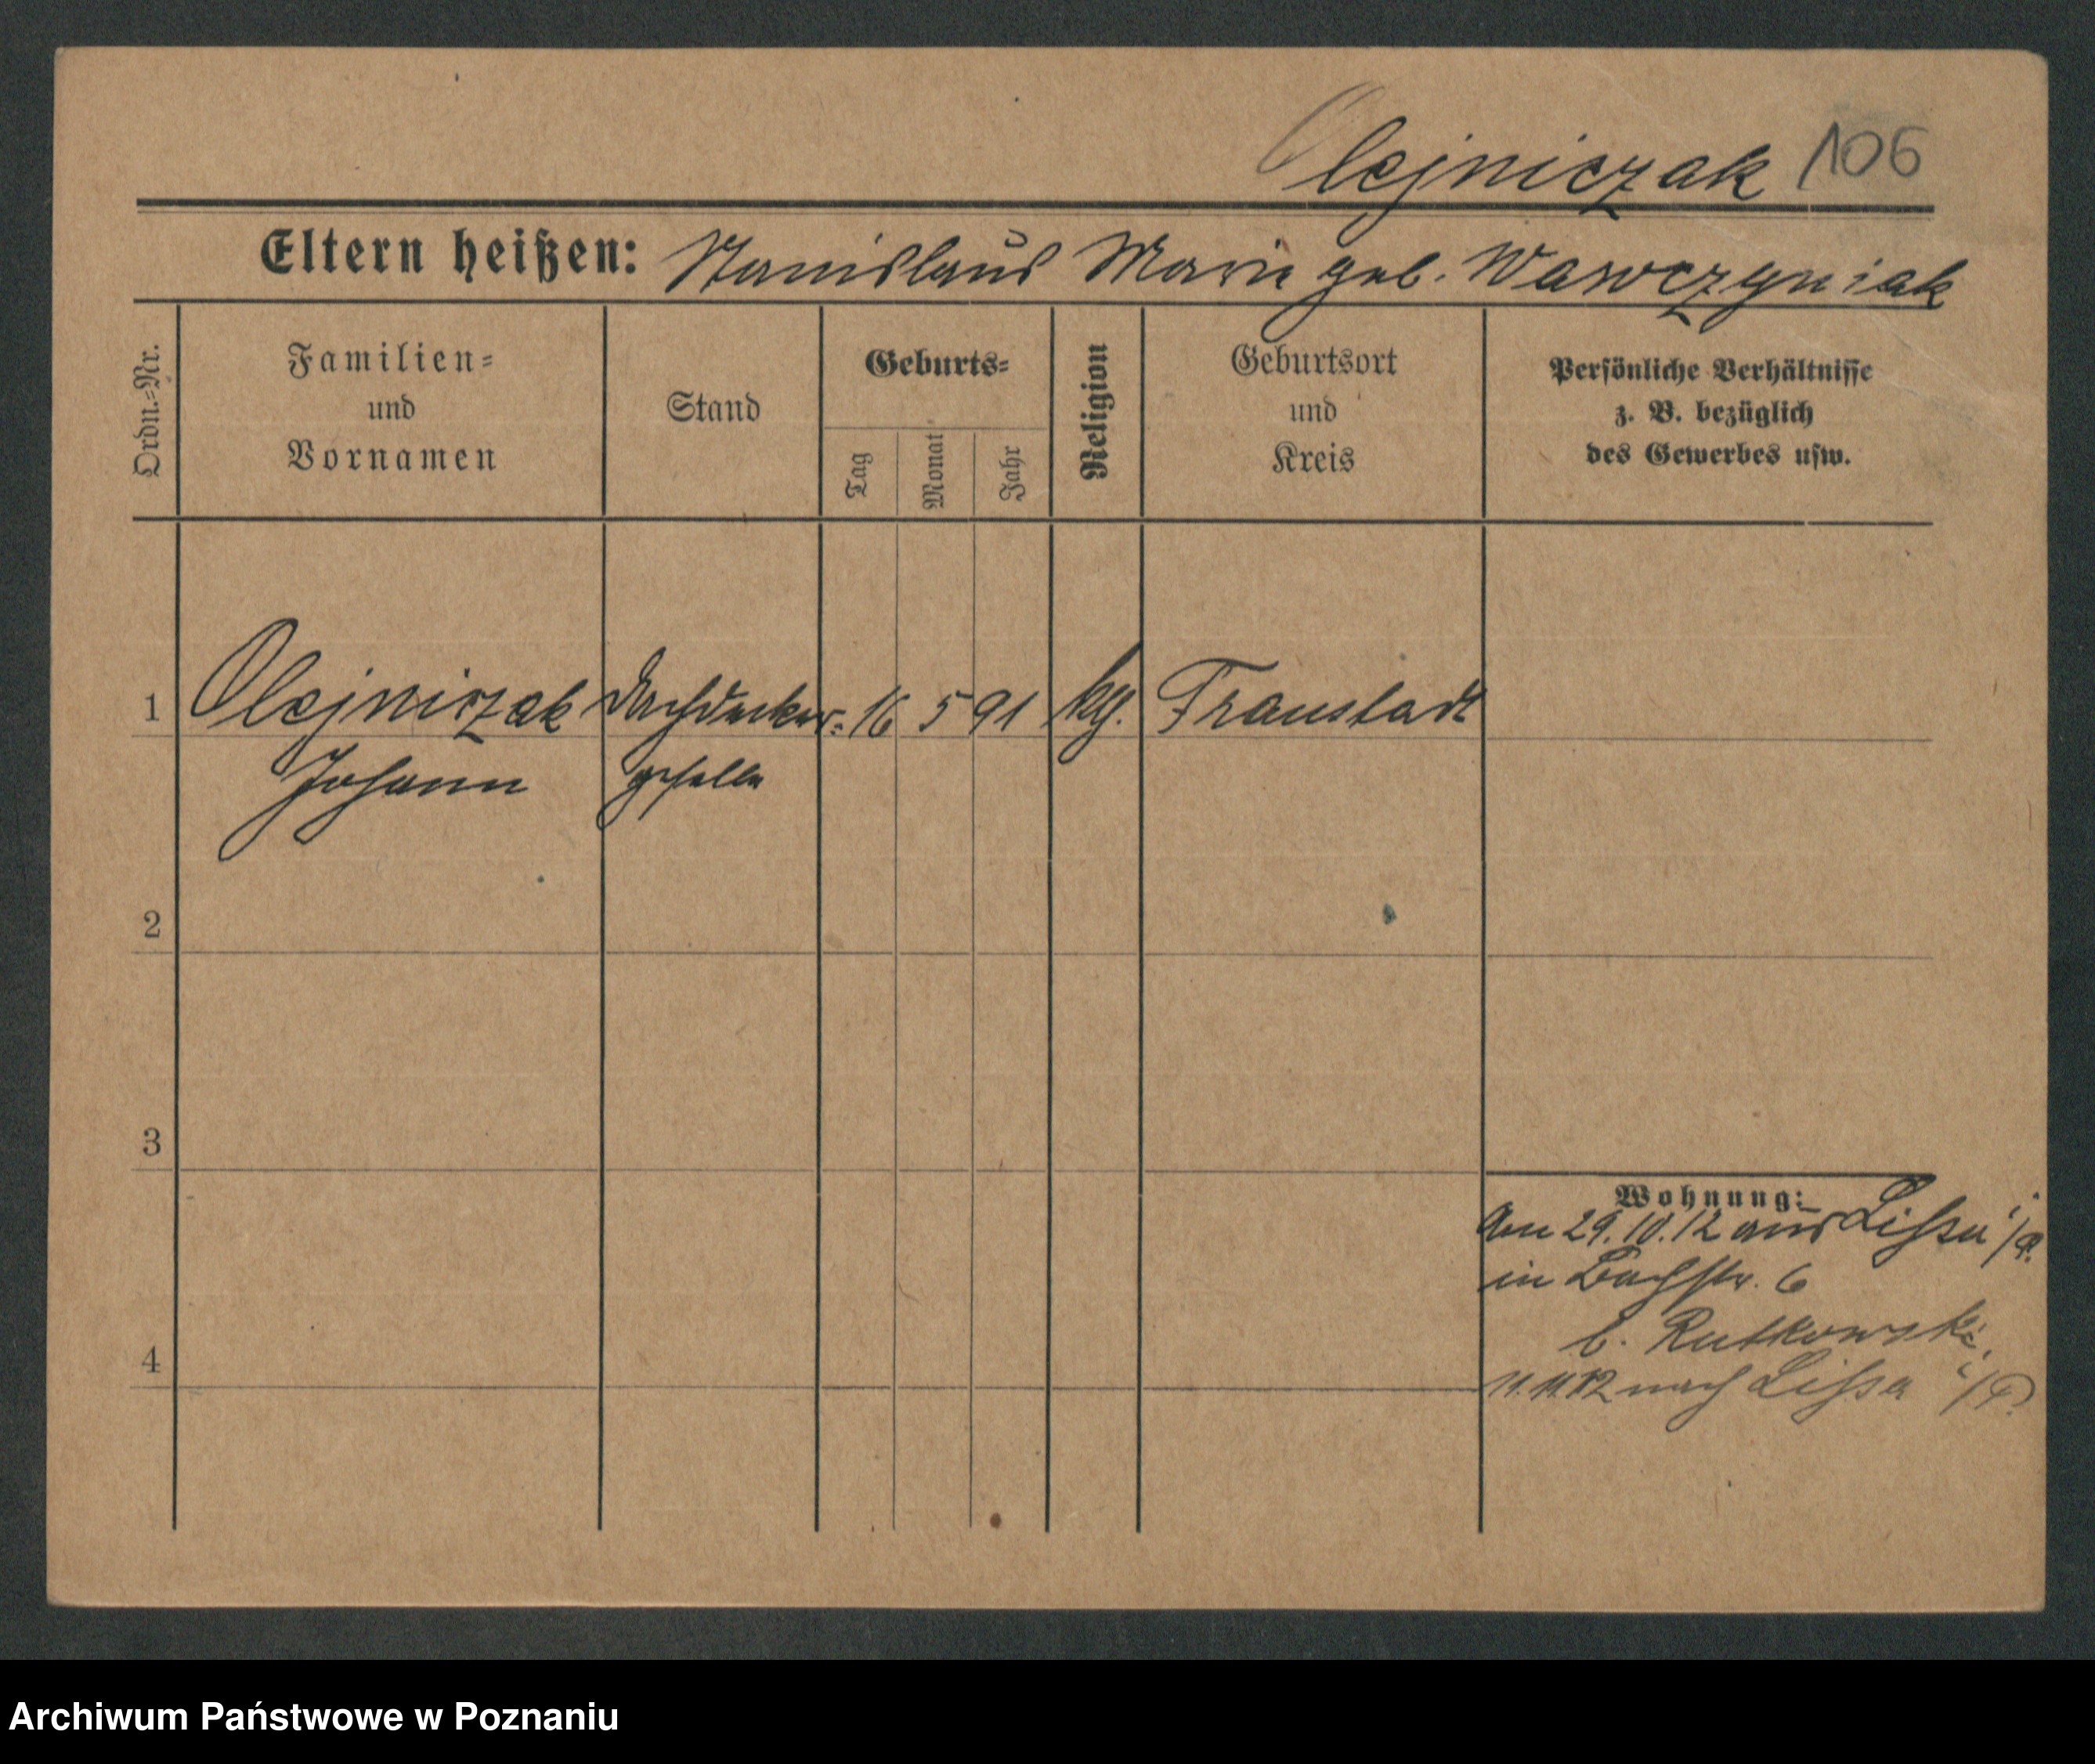 Olejniczak 106
Eltern heißen: Stanislaus Marie geb. Wawczyniak
Ordn.-Nr.
Familien-
und
Vornamen
Stand
Geburts-
Tag
Monat
Jahr
Religion
Geburtsort
und
Kreis
Persönliche Verhältnisse
z. B. bezüglich
des Gewerbes usw.
1 Olejniczak Dachdecker- 16 5 91 kth. Fraustadt
Johann geselle
2
3
Wohnung:
29.10.12 aus Lissa i/P.
in Bachstr. 6
b. Rutkowski
11.11.12 nach Lissa i/P.
4
Archiwum Państwowe w Poznaniu